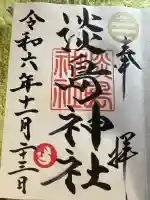 奉拝
淡嶋神社
淡島神社
令和六年十一月二十三日